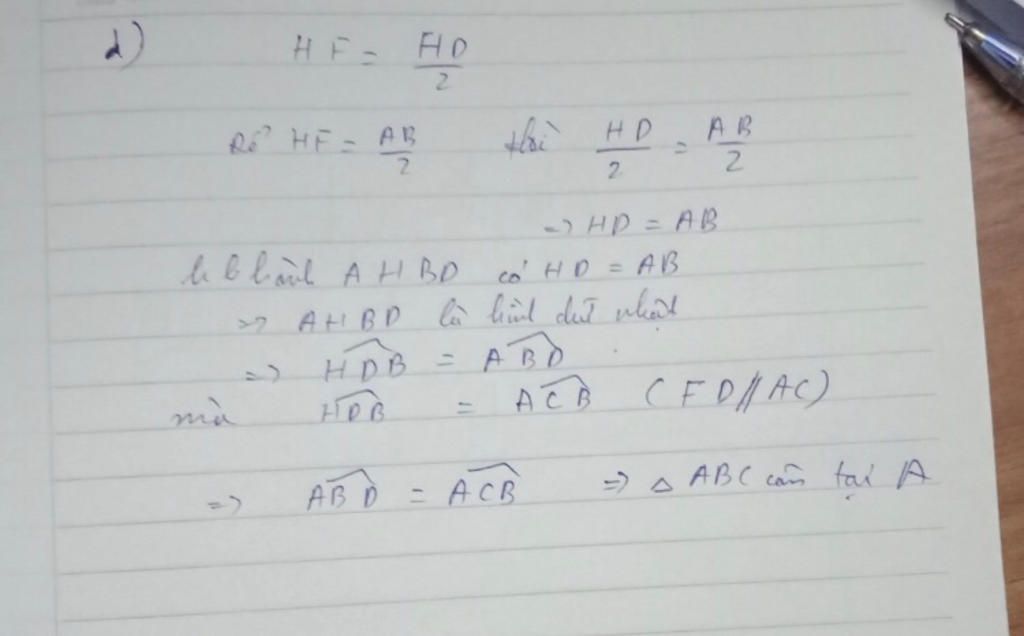 d) HF = HD/2
Để HF = AB/2 thì HD/2 = AB/2
=> HD = AB
h b hành AHBD có HD = AB
=> AHBD là hình chữ nhật
=> \widehat{HDB} = \widehat{ABD}
mà \widehat{HDB} = \widehat{ACB} (FD//AC)
=> \widehat{ABD} = \widehat{ACB} => △ABC cân tại A